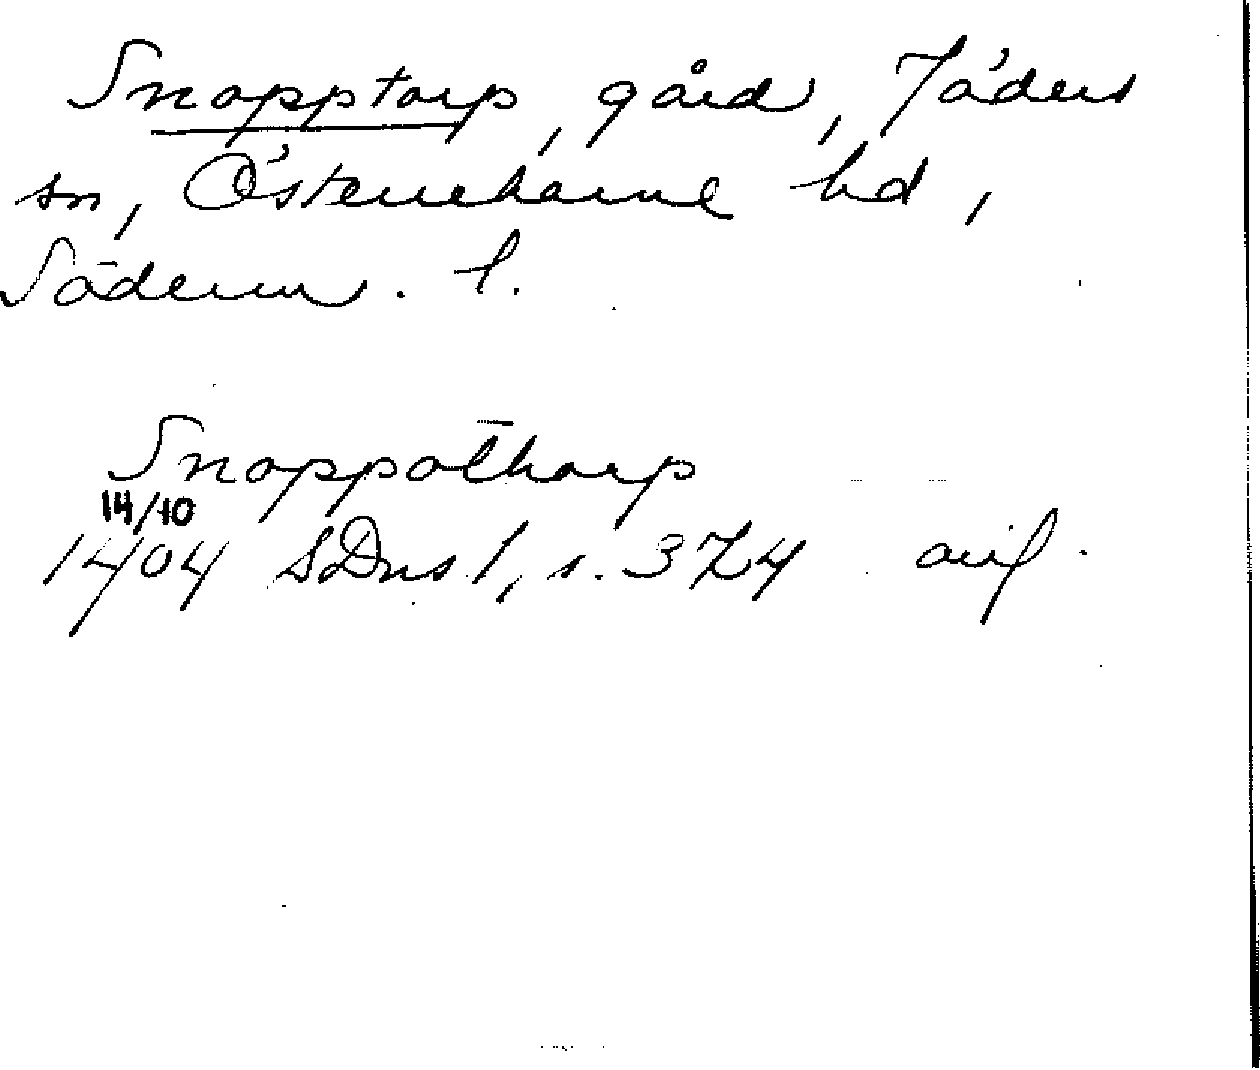 Snopptorp, gård, Jäders
sn, Österrekarne hd,
Söderm. l.
Snoppothorp
14/10
1404 SDns 1, s. 374 avf.